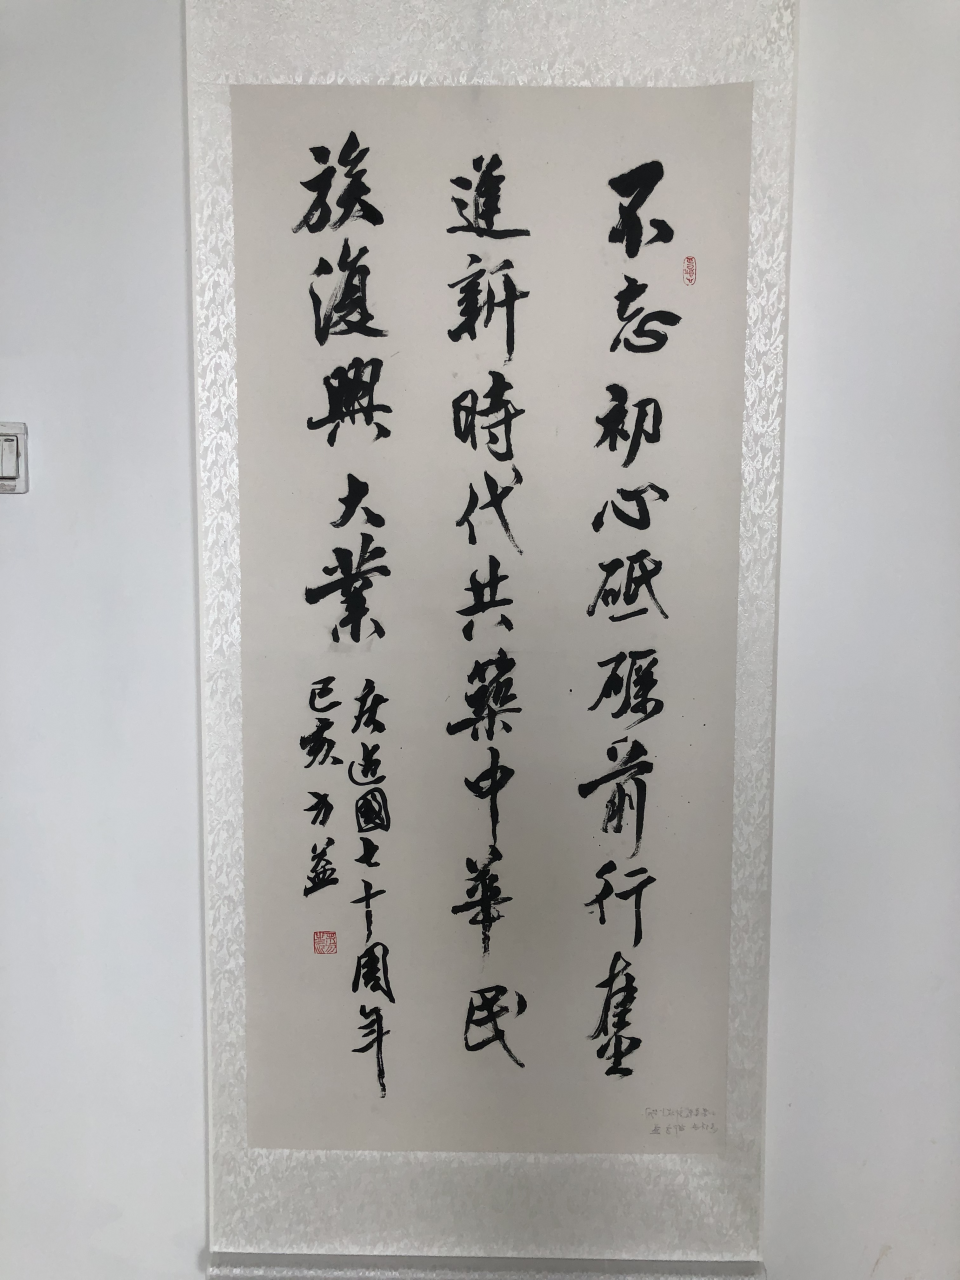 不忘初心砥礪前行奮
進新時代共築中華民
族復興大業
庆祖國七十周年
己亥方益